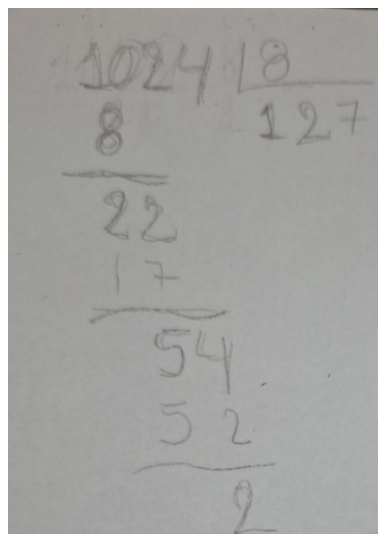 1024 8
8 127
22
17
54
52
2